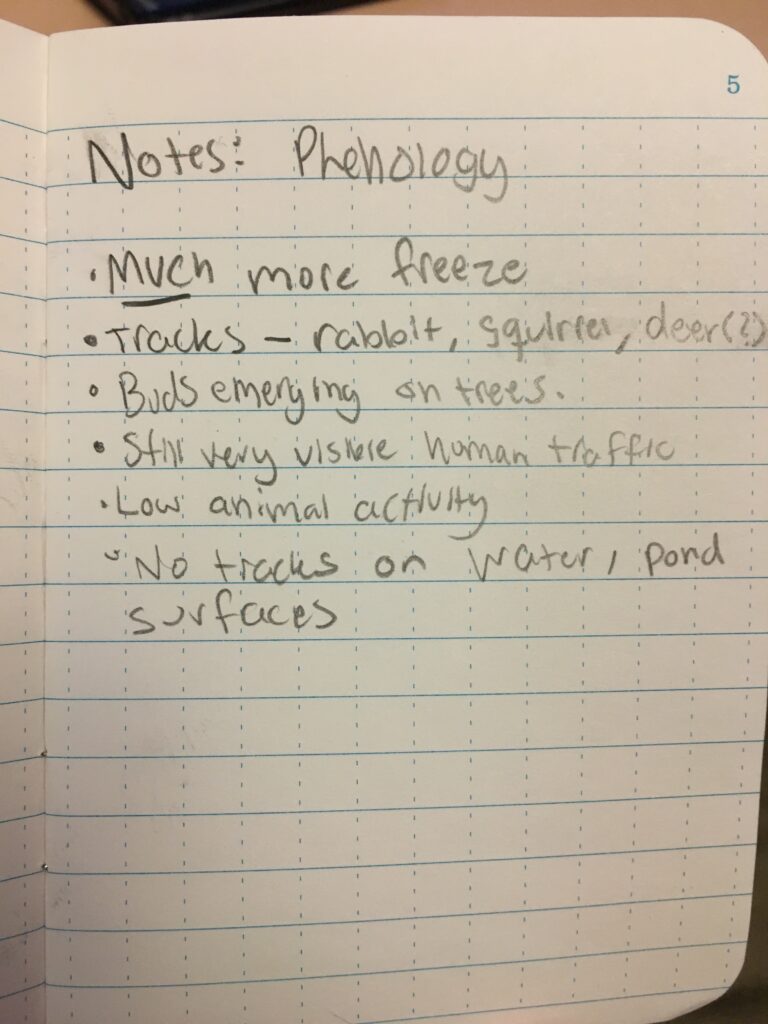 5
Notes: Phenology
• Much more freeze
• Tracks – rabbit, squirrel, deer(?)
• Buds emerging on trees.
• Still very visible human traffic
• Low animal activity
• No tracks on water, pond
surfaces